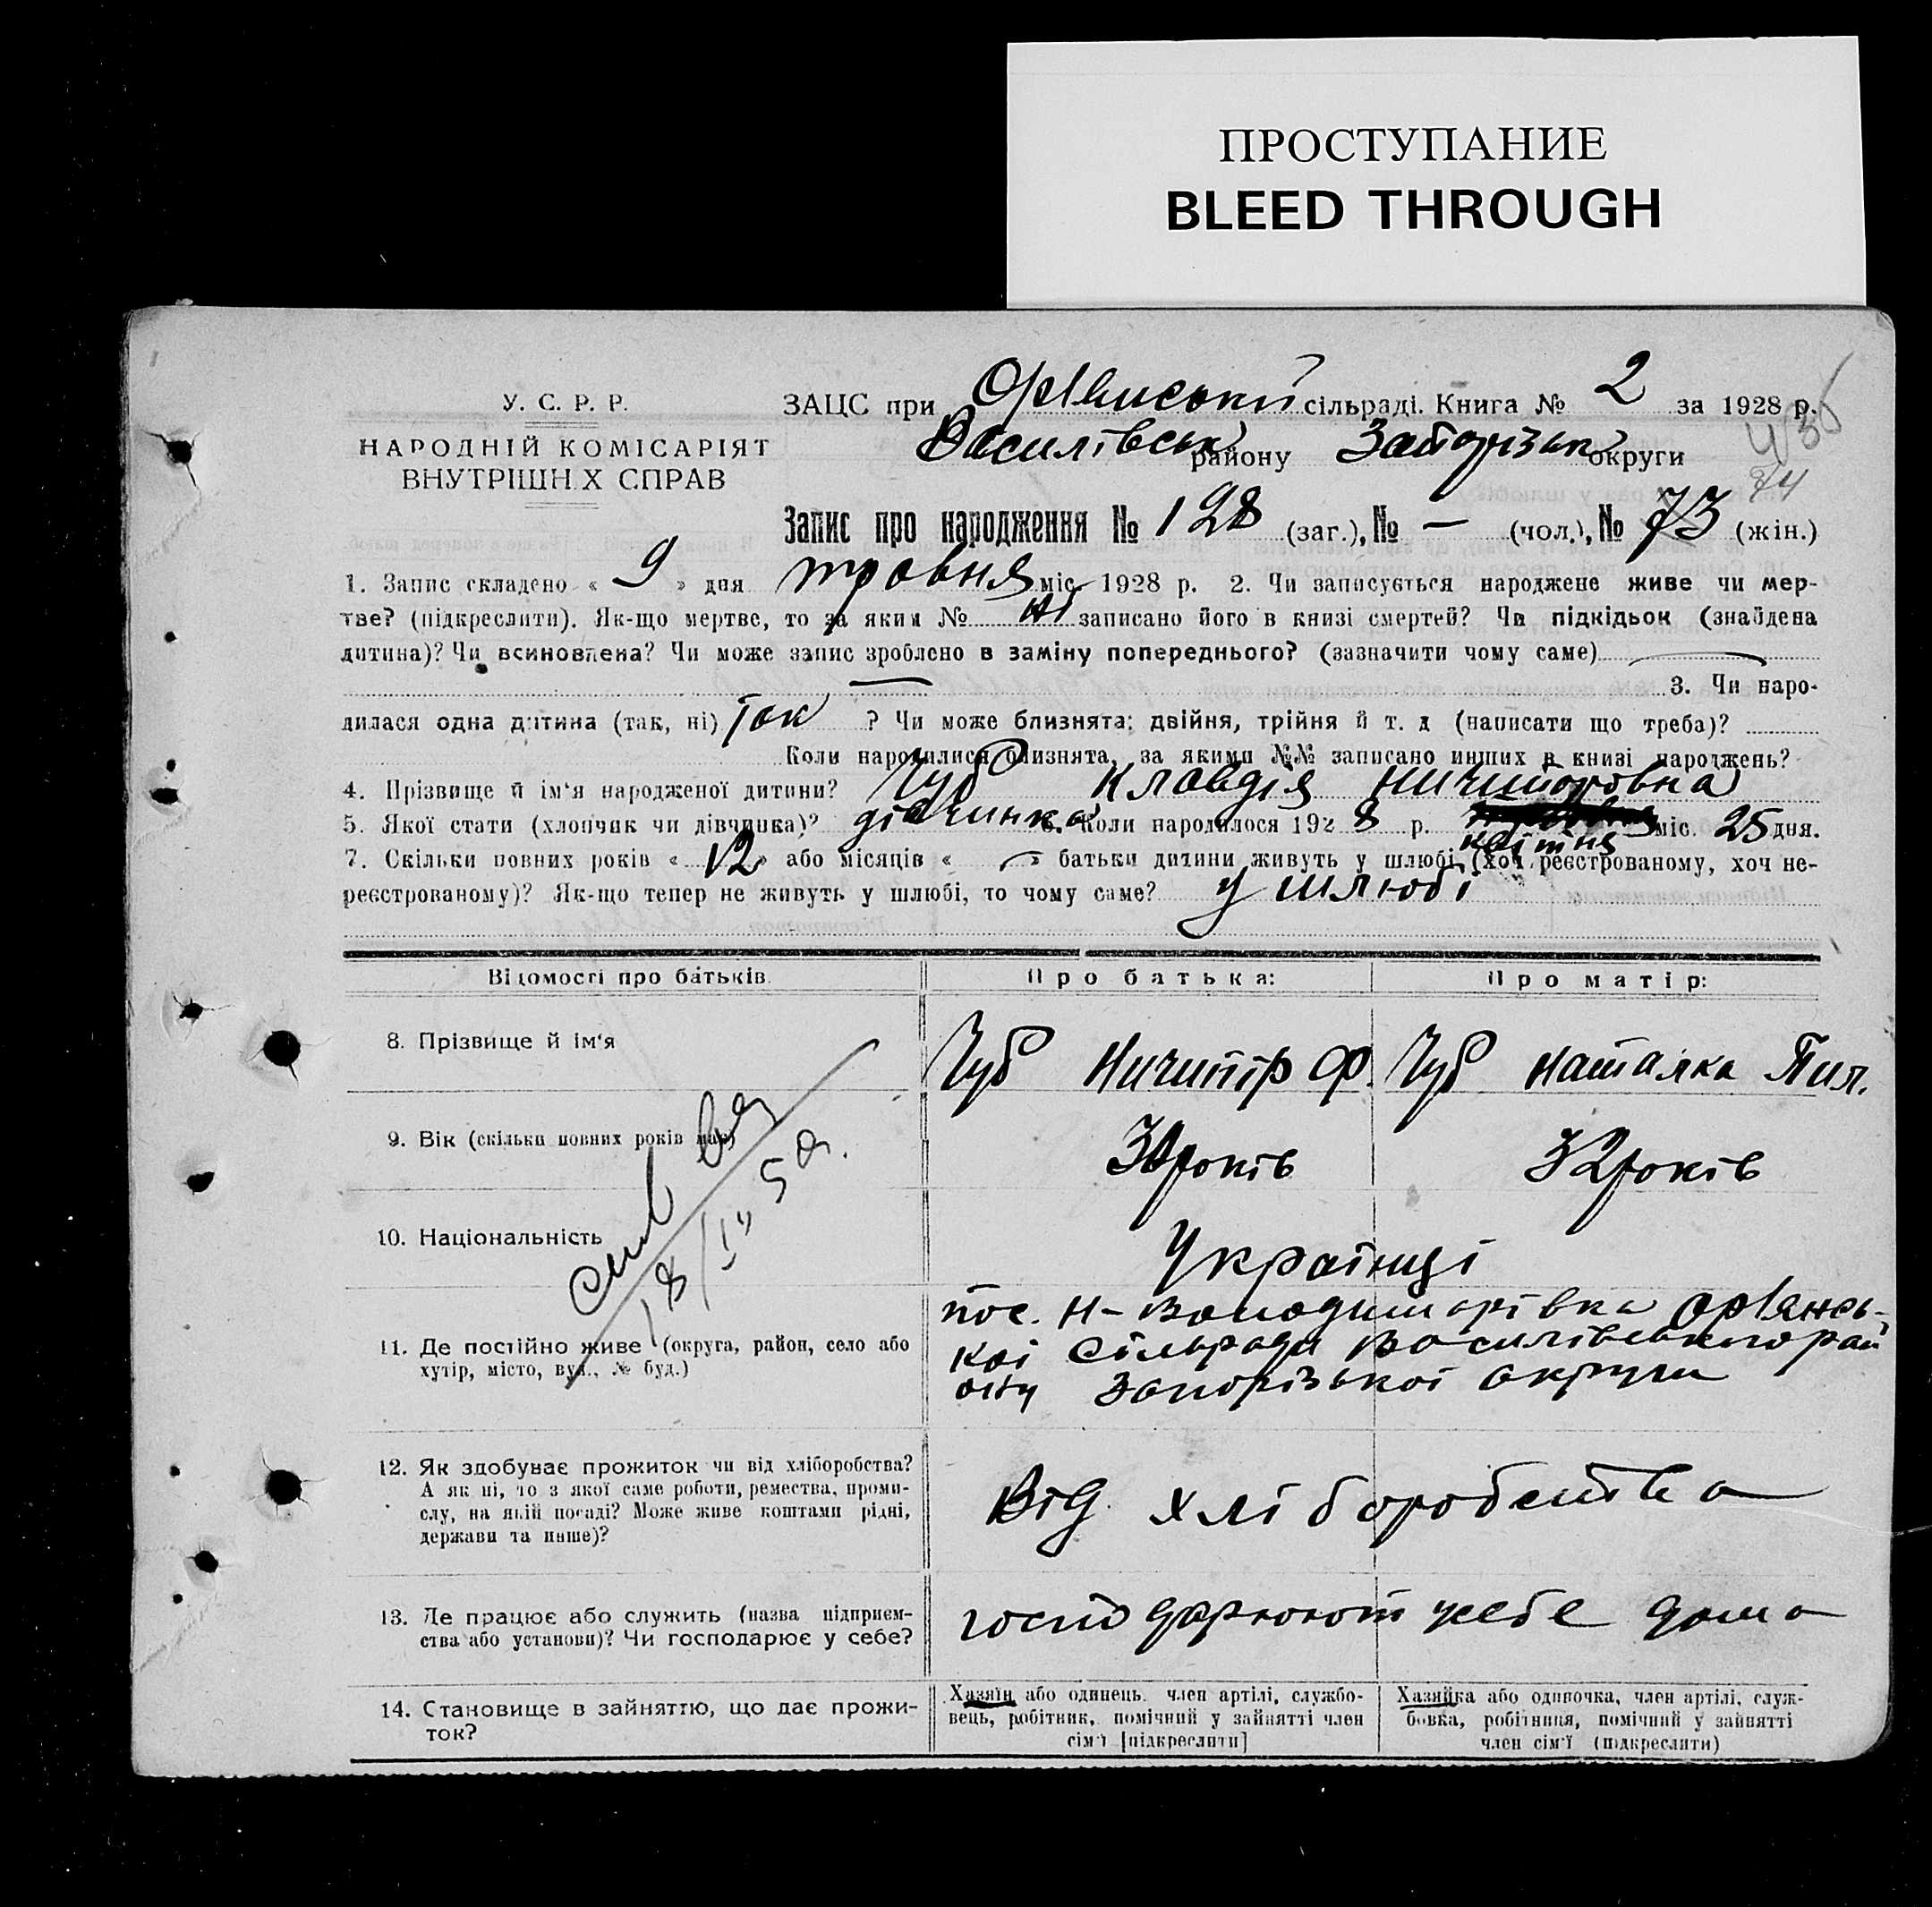 ПРОСТУПАНИЕ
BLEED THROUGH
У. С. Р. Р.
НАРОДНІЙ КОМІСАРІЯТ
ВНУТРІШН.Х СПРАВ
ЗАЦС при Орlянській сільраді. Книга № 2 за 1928 р.
Василівськ району Запорізьк округи
74
Запис про народження № 128 (заг.), № — (чол.), № 73 (жін.)
1. Запис складено « 9 » дня травня міс. 1928 р. 2. Чи записується народжене живе чи мер-
тве? (підкреслити). Як-що мертве, то за яким № записано його в книзі смертей? Чи підкідьок (знайдена
дитина)? Чи всиновлена? Чи може запис зроблено в заміну попереднього? (зазначити чому саме)
— 3. Чи наро-
дилася одна дитина (так, ні) Так ? Чи може близнята: двійня, трійня й т. д (написати що треба)?
Коли народилися близнята, за якими №№ записано инших в книзі народжень?
4. Прізвище й ім‘я народженої дитини? Чуб Клавдія Ничипоровна
5. Якої стати (хлопчик чи дівчинка)? дівчинка 6. Коли народилося 1928 р. квітня міс. 25 дня.
7. Скільки повних років « 12 » або місяців « — » батьки дитини живуть у шлюбі (хоч реєстрованому, хоч не-
реєстрованому)? Як-що тепер не живуть у шлюбі, то чому саме? у шлюбі
Відомості про батьків
Про батька:
Про матір:
8. Прізвище й ім‘я
Чуб Ничипір Ф.
Чуб Наталка Пил.
9. Вік (скільки повних років має)
років
32 років
10. Національність
Українці
11. Де постійно живе (округа, район, село або
хутір, місто, вул., № буд.)
пос. Н-Володимирівка Орlянсь-
кої Сільради Василівського рай
ону Запорізької округи
12. Як здобуває прожиток чи від хліборобства?
А як ні, то з якої саме роботи, ремества, проми-
слу, на якій посаді? Може живе коштами рідні,
держави та инше)?
Від хліборобства
13. Де працює або служить (назва підприєм-
ства або установи)? Чи господарює у себе?
господарюють усебе дома
14. Становище в зайняттю, що дає прожи-
ток?
Хазяїн або одинець, член артілі, службо-
вець, робітник, помічний у зайнятті член
сім‘ї [підкреслити]
Хазяйка або одиночка, член артілі, служ-
бовка, робітниця, помічний у зайнятті
член сім‘ї (підкреслити)